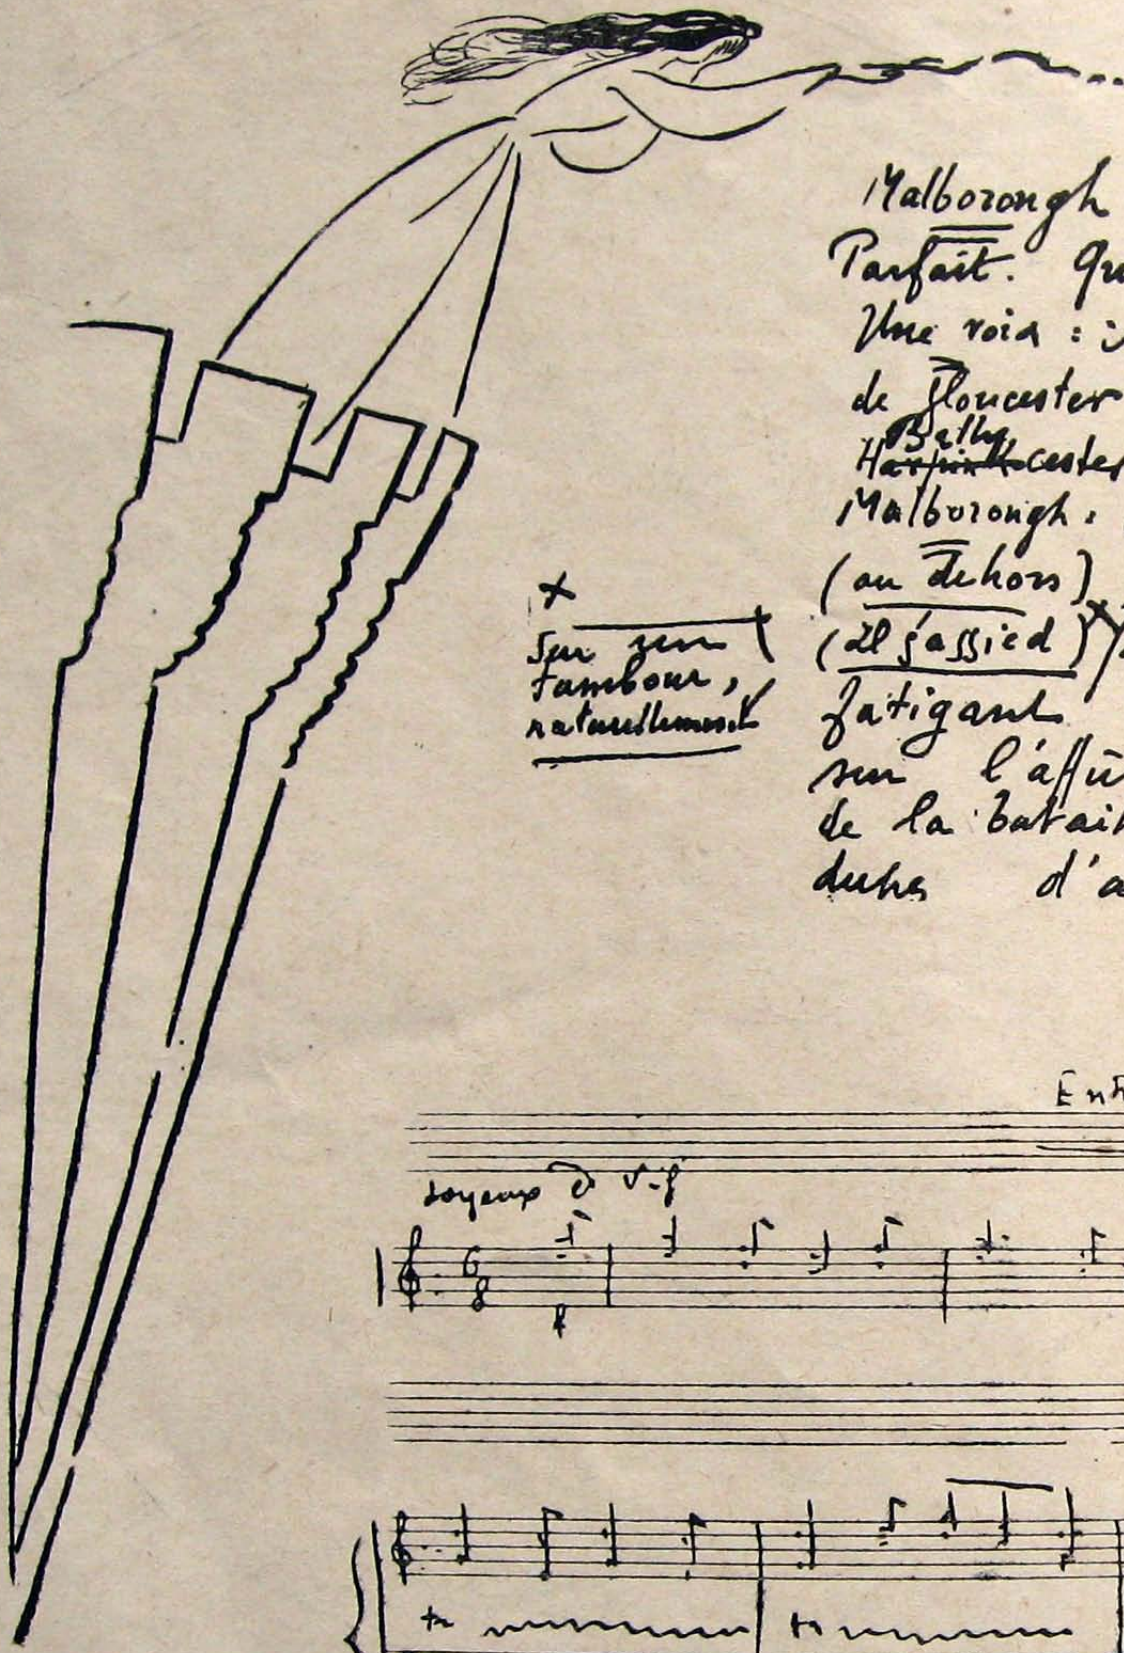 Malborough
Parfait. Qu
Une voix :
de Gloucester
Bethy
cester
Malborough.
(au dehors)
(Il s'assied)
fatigant
sur l'affû
de la batail
duhes d'a
x
sur un
tambour,
naturellement
Ent
Joyeux & vif
6
8
tr
tr